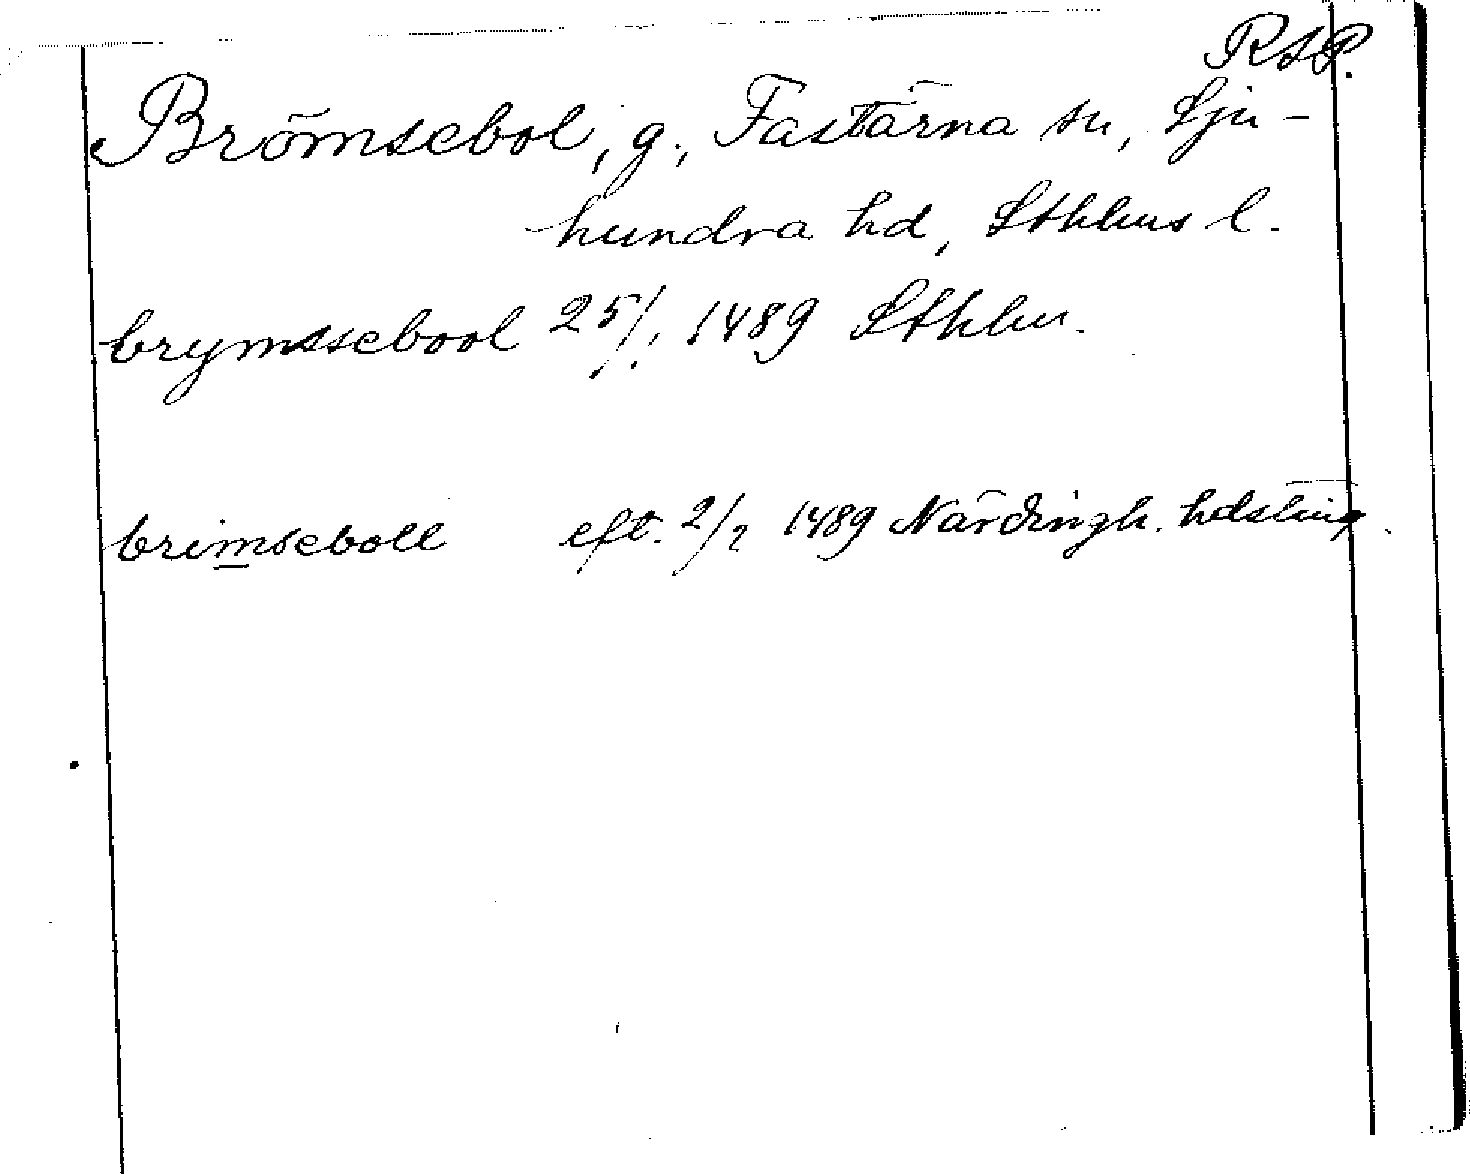 RAP.
Brömsebol, g., Fasterna sn, Sju-
hundra hd, Sthlms l.
brymssebool 25/1 1489 Sthlm.
brimseboll eft. 2/2 1489 Närdingh. hdsting.